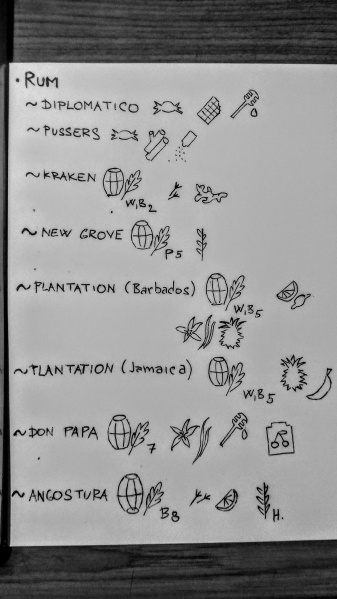 • RUM
~ DIPLOMATICO
~ PUSSERS
~ KRAKEN W,B2
~ NEW GROVE P5
~ PLANTATION (Barbados) W,B5
~ PLANTATION (Jamaica) W,B5
~ DON PAPA 7
~ ANGOSTURA B8 H.